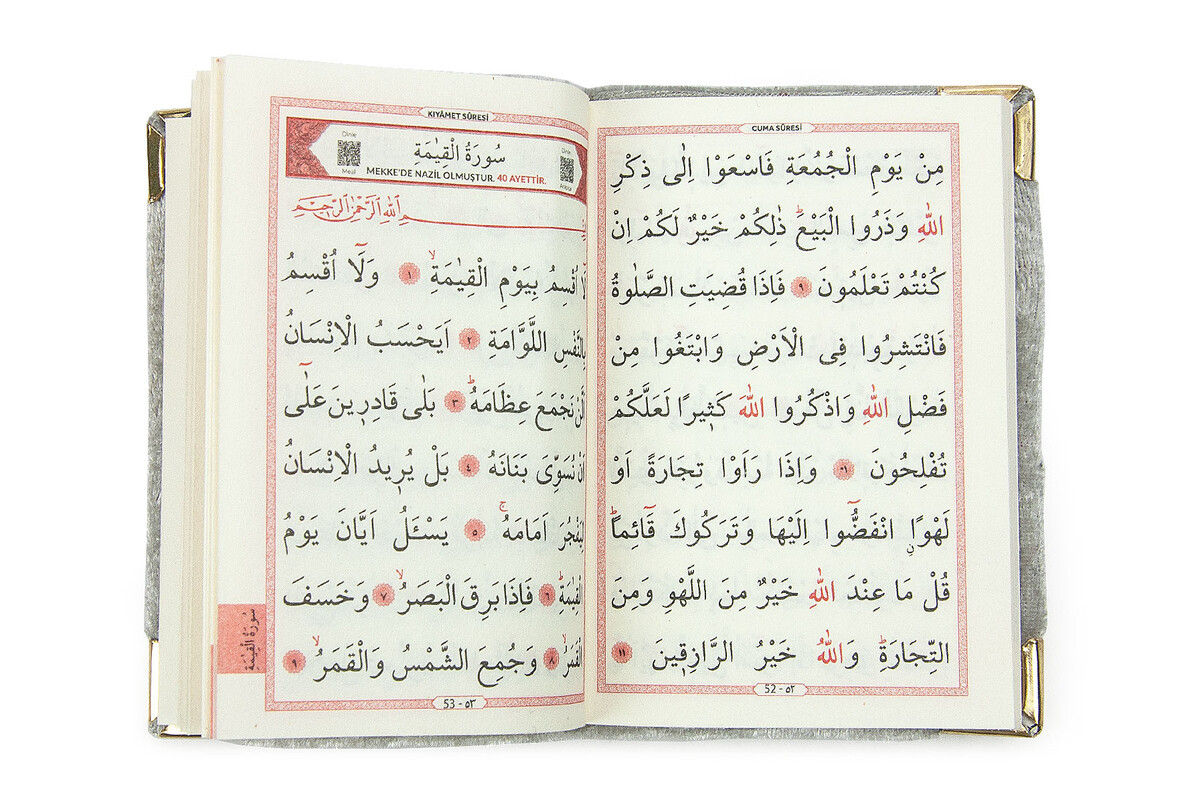 CUMA SÛRESİ
مِنْ يَوْمِ الْجُمُعَةِ فَاسْعَوْا اِلٰى ذِكْرِ
اللّٰهِ وَذَرُوا الْبَيْعَۜ ذٰلِكُمْ خَيْرٌ لَكُمْ اِنْ
كُنْتُمْ تَعْلَمُونَ ٩ فَاِذَا قُضِيَتِ الصَّلٰوةُ
فَانْتَشِرُوا فِى الْاَرْضِ وَابْتَغُوا مِنْ
فَضْلِ اللّٰهِ وَاذْكُرُوا اللّٰهَ كَثٖيرًا لَعَلَّكُمْ
تُفْلِحُونَ ١٠ وَاِذَا رَاَوْا تِجَارَةً اَوْ
لَهْوًاۨ انْفَضُّٓوا اِلَيْهَا وَتَرَكُوكَ قَٓائِمًاۜ
قُلْ مَا عِنْدَ اللّٰهِ خَيْرٌ مِنَ اللَّهْوِ وَمِنَ
التِّجَارَةِۜ وَاللّٰهُ خَيْرُ الرَّازِقٖينَ ١١
52 - ٥٢
KIYÂMET SÛRESİ
Dinle
Dinle
سُورَةُ الْقِيٰمَةِ
MEKKE'DE NAZİL OLMUŞTUR. 40 AYETTİR.
Meal
بِسْمِ اللّٰهِ الرَّحْمٰنِ الرَّحٖيمِ
لَٓا اُقْسِمُ بِيَوْمِ الْقِيٰمَةِۙ ١ وَلَٓا اُقْسِمُ
بِالنَّفْسِ اللَّوَّامَةِ ٢ اَيَحْسَبُ الْاِنْسَانُ
اَلَّنْ نَجْمَعَ عِظَامَهُۜ ٣ بَلٰى قَادِرٖينَ عَلٰٓى
اَنْ نُسَوِّىَ بَنَانَهُ ٤ بَلْ يُرٖيدُ الْاِنْسَانُ
لِيَفْجُرَ اَمَامَهُۚ ٥ يَسْـَٔلُ اَيَّانَ يَوْمُ
الْقِيٰمَةِۜ ٦ فَاِذَا بَرِقَ الْبَصَرُۙ ٧ وَخَسَفَ
الْقَمَرُۙ ٨ وَجُمِعَ الشَّمْسُ وَالْقَمَرُۙ ٩
سُورَةُ الْقِيٰمَةِ
53 - ٥٣